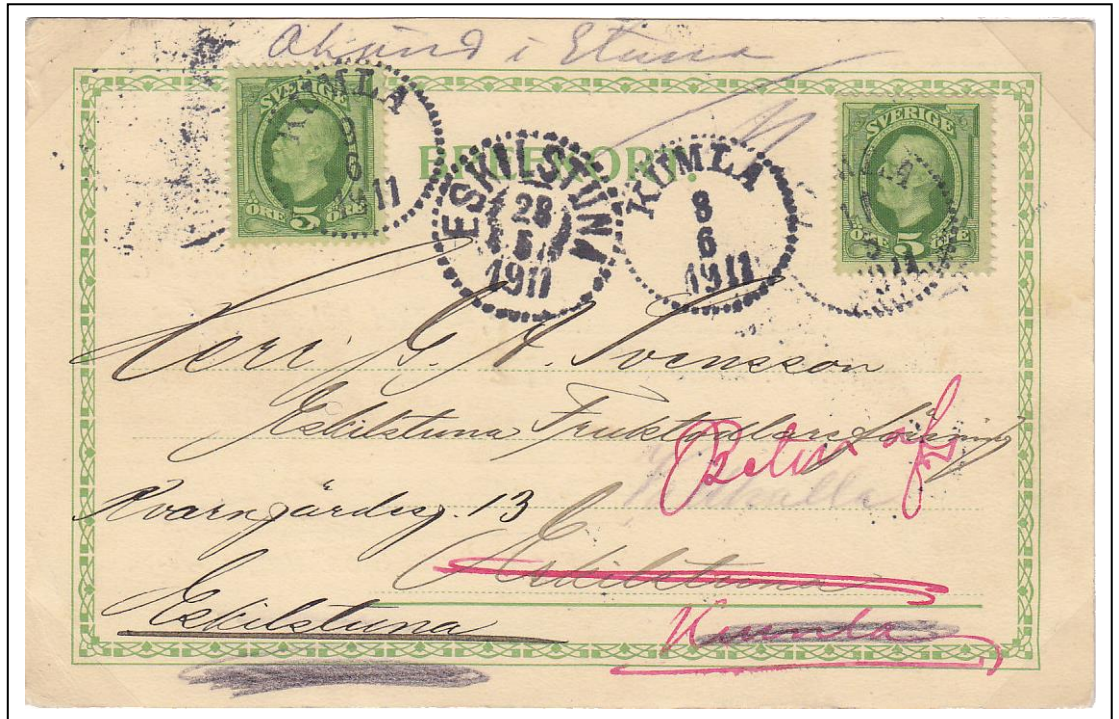 Okänd i Etuna
SVERIGE
ÖRE 5 ÖRE
KUMLA
6
1911
BREFKORT.
ESKILSTUNA
28
5
1911
KUMLA
8
6
1911
SVERIGE
ÖRE 5 ÖRE
Herr G. A. Svensson
Eskilstuna Fruktodlareförening
Retur
Kvarngärdesg. 13
Eskilstuna
Eskilstuna
Kumla